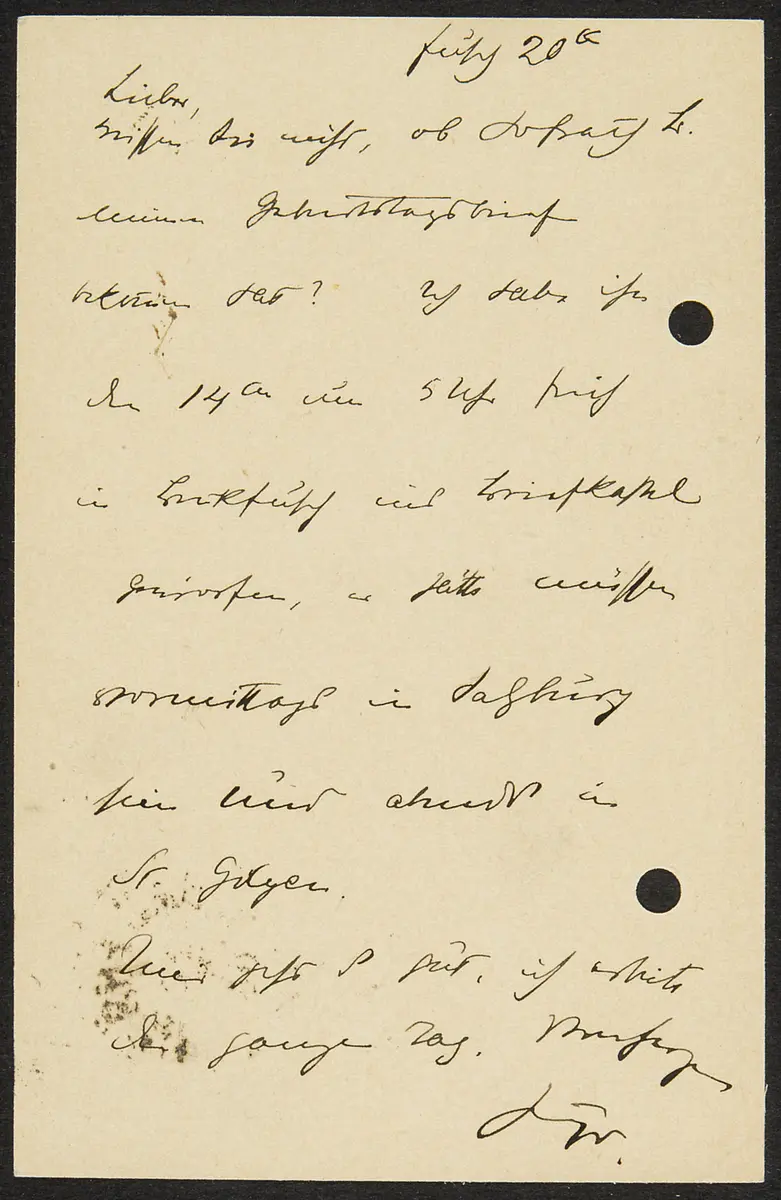 Fusch 20te
Lieber,
wissen Sie nicht, ob Hofrath B.
meinen Geburtstagsbrief
bekomen hat? Ich habe ihn
den 14ten um 5 Uhr früh
in Bruckfusch ins Briefkastel
geworfen, er hätte müssen
vormittags in Salzburg
sein und abends in
St Gilgen.
Mir geht's gut, ich arbeite
den ganzen Tag.